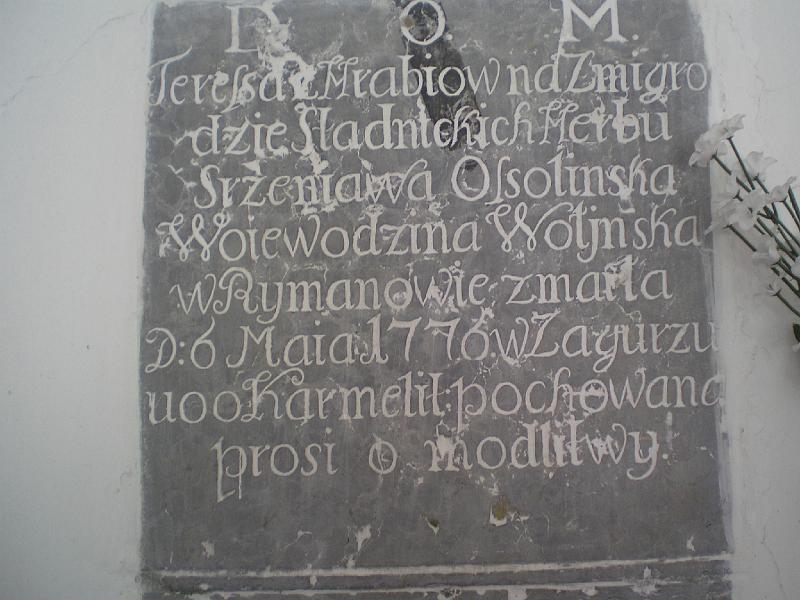 D. O. M.
Teressa z Hrabiow na Zmigro
dzie Stadnickich Herbu
Srzeniawa Ossolinska
Woiewodzina Wołÿnska
w Rymanowie zmarła
D: 6 Maia 1776. w Zagurzu
u oo Karmelit: pochowana
prosi o modlitwy.